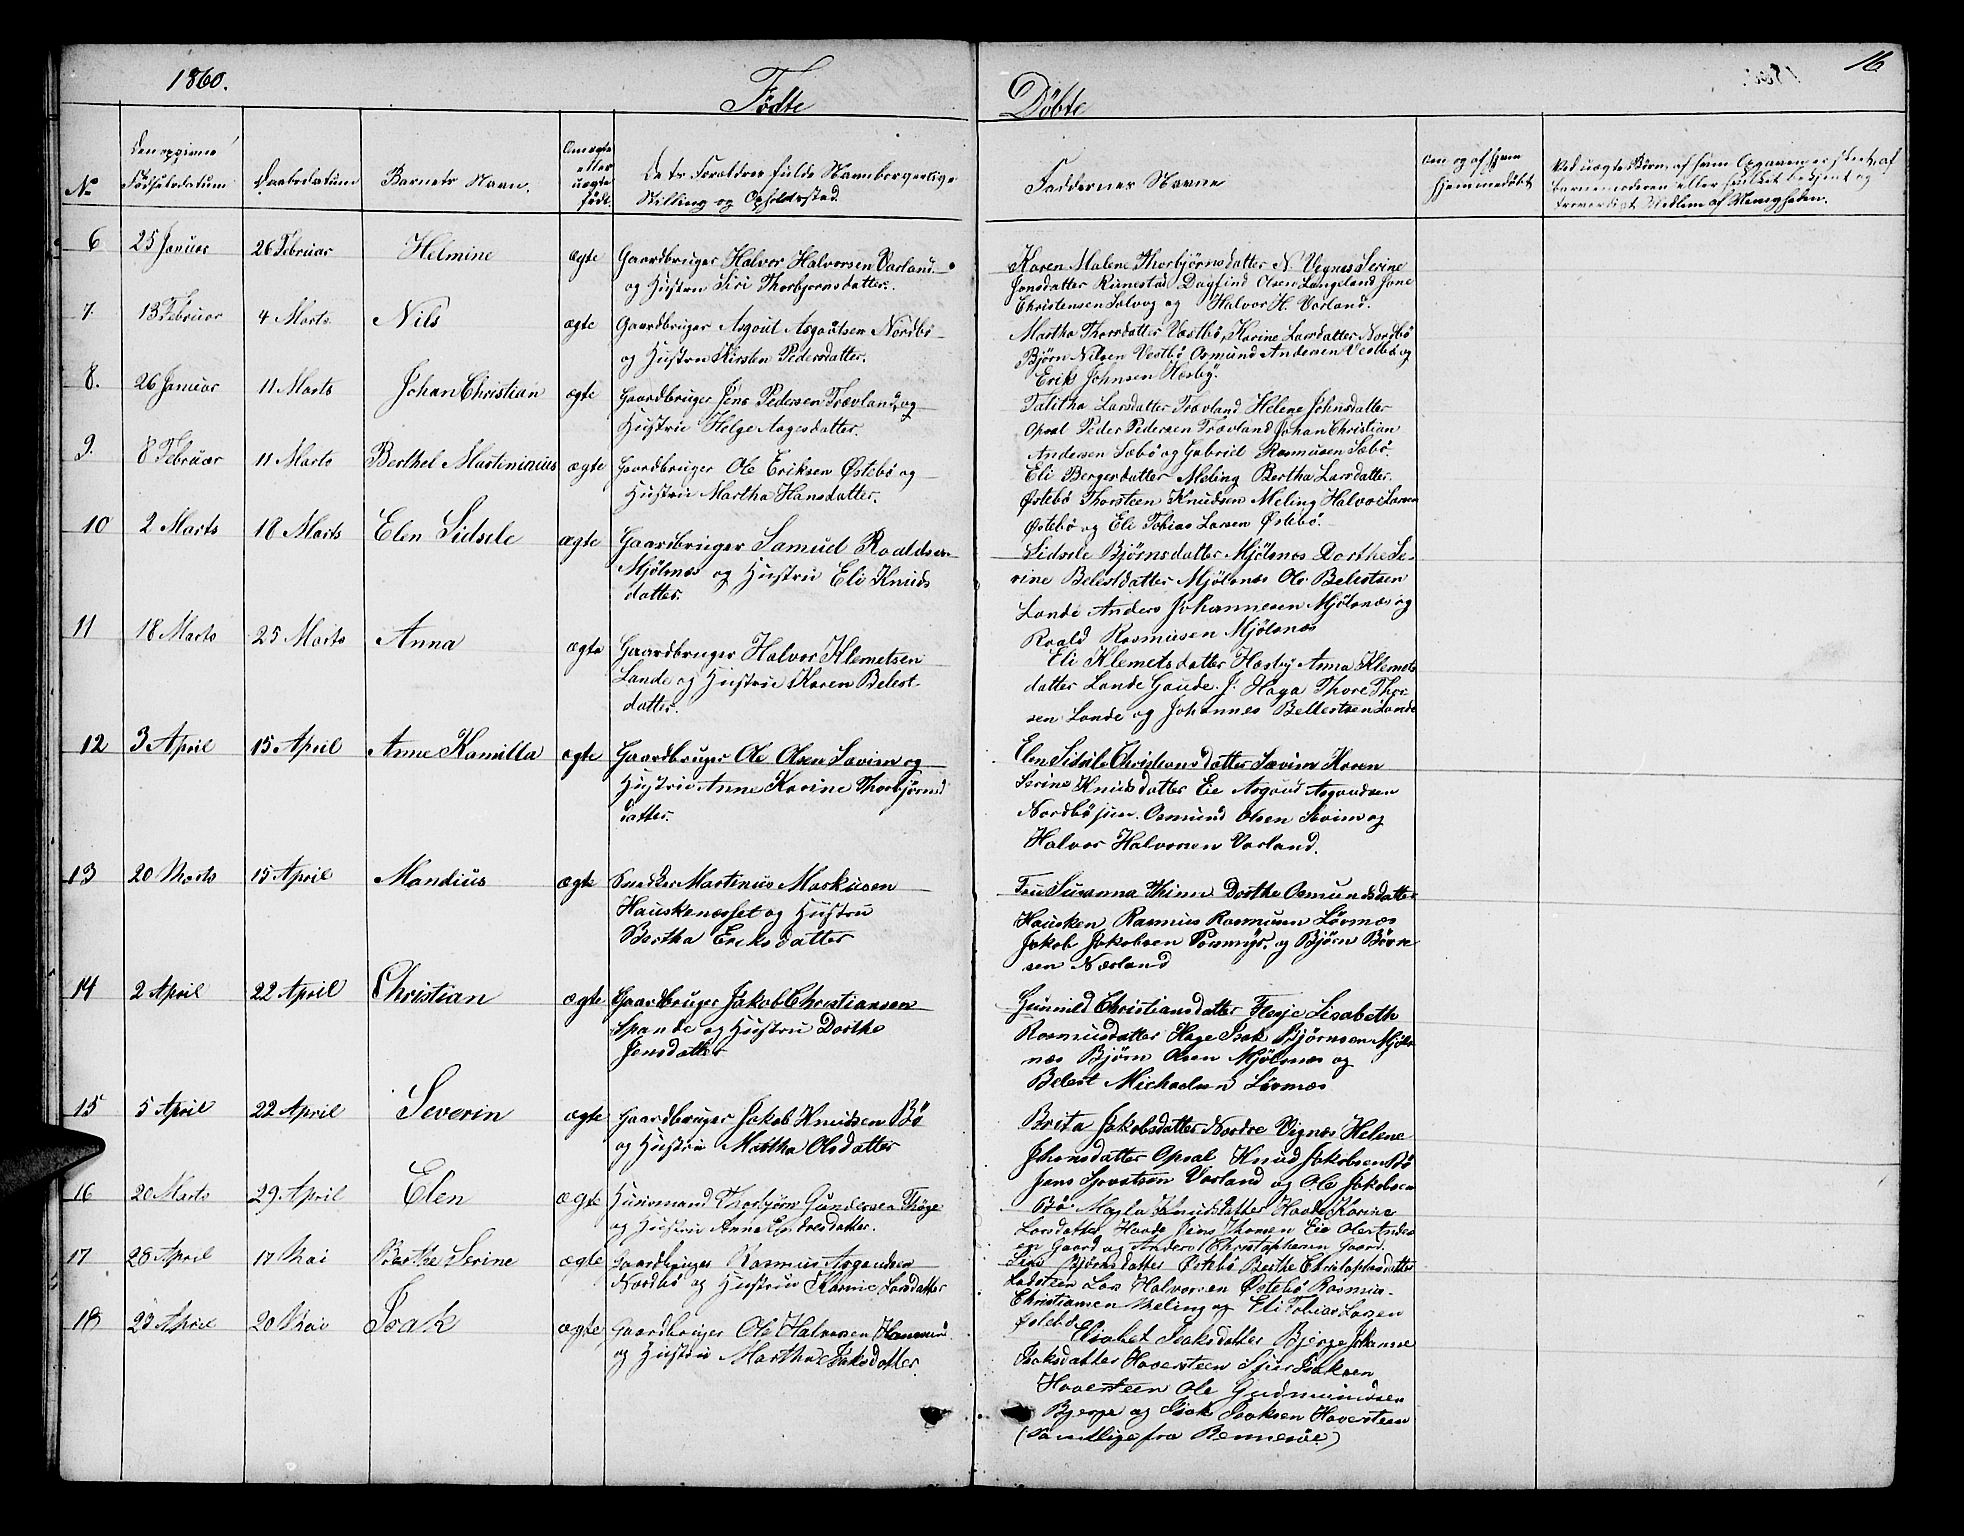 1860.
Fødte
Døbte
16
No
Den opgivne Fødselsdatum
Daabsdatum
Barnets Navn.
Om ægte eller uægte født.
Dets Foræloldres fulde Navn borgerlige Stilling og Opholdssted.
Faddernes Navne
Om og af hvem hjemmedøbt
Ved uægte Børn, af hvem Opgaven er skeet, af barnemoderen eller hvilket bekjent og troværdigt Medlem af Menigheden.
6
25 Januar
26 Februar
Helmine
ægte
Gaardbruger Halvor Halvorsen Vorland
og Hustru Siri Thorbjørnsdatter.
Karen Malene Thorbjørnsdatter N. Vignes Serine
Jonsdatter Runestad Dagfind Olsen Langeland Jone
Christensen Salvog og Halvor H. Vorland.
7.
13 Februar
4 Marts
Nils
ægte
Gaardbruger Asgout Asgoutsen Nordbø
og Hustru Kirsten Pedersdatter.
Martha Thorsdatter Vestbø, Karine Larsdatter Nordbø
Bjørn Nilsen Vestbø Osmund Andersen Vestbø og
Erik Johnsen Hæsby.
8.
26 Januar
11 Marts
Johan Christian
ægte
Gaardbruger Jens Pedersen Trævland, og
Hustru Helge Aagesdatter.
Talitha Larsdatter Trævland Helene Johnsdatter
Opsal Peder Pedersen Trævland Johan Christian
Andersen Sæbø og Gabriel Rasmusen Sæbø.
9.
8 Februar
11 Marts
Berthel Marteninius
ægte
Gaardbruger Ole Eriksen Østebø og
Hustru Martha Hansdatter.
Eli Bergersdatter Meling Bertha Larsdatter.
Østebø Thorsteen Knudsen Meling Halvor Larsen
Østebø og Eli Tobias Larsen Østebø.
10
2 Marts
18 Marts
Elen Sidsele
ægte
Gaardbruger Samuel Roaldsen
Mjølsnæs og Hustru Eli Knuds
datter.
Sidsele Bjørnsdatter Mjølsnæs Dorthe Se-
rine Belestdatter Mjølsnæs Ole Belestsen
Lande Anders Johannesen Mjølsnæs og
Roald Rasmusen Mjølsnæs
11
18 Marts
25 Marts
Anna
ægte
Gaardbruger Halvor Klemetsen
Lande og Hustru Karen Belest-
datter.
Eli Klemetsdatter Hæsby Anna Klemets
datter Lande Gaude. J. Haga Thore Thor
sen Lande og Johannes Bellestsen Lande
12
3 April
15 April
Anne Kamilla
ægte
Gaardbruger Ole Olsen Sævim og
Hustru Anne Karine Thorbjørns
datter.
Elen Sidsele Christiansdatter Sævim Karen
Serine Knudsdatter Eie Asgoud Asgoudsen
Nordbø jun. Osmund Olsen Sevim og
Halvor Halvorsen Vorland.
13
20 Marts
15 April
Mandius
ægte
Snedker Martinus Markusen
Hauskenæsset og Hustru
Bertha Eriksdatter
Fru Susanna Thinn Dorthe Osmundsdatter
Hausken, Rasmus Rasmusen Løvnæs
Jakob Jakobsen Pormyr. og Bjørn Bjørn
sen Nærland
14
2 April
22 April
Christian
ægte
Gaardbruger Jakob Christiansen
Spande og Hustru Dorthe
Jensdatter
Gunnild Christiansdatter Flesje Lisabeth
Rasmusdatter Hage Isak Bjørnsen Mjøls
næs Bjørn Olsen Mjølsnæs og
Belest Michaelsen Løvnæs
15
5 April
22 April
Severin
ægte
Gaardbruger Jakob Knudsen Bø
og Hustru Martha Olsdatter
Brita Jakobsdatter Nordre Vignes Helene
Jhonsdatter Opsal Knud Jakobsen Bø
Jens Sjovatsen Vorland og Ole Jakobsen
Bø.
16
20 Marts
29 April
Elen
ægte
Husmand Thorbjørn Gundersen Thøge
og Hustru Anne Endresdatter.
Magla Knudsdatter Haade Karine
Larsdatter Haade Jens Thomsen Eie Ole Anders
en Gaard og Anders Christophersen Gaard.
17
28 April
17 Mai
Berthe Serine
ægte
Gaardbruger Rasmus Asgoudsen
Nordbø og Hustru Karine Larsdatter
Siri Bjørnsdatter Østebø Berthe Christophersdatter
Ladsteen Lars Halvorsen Østebø Rasmus-
Christiansen Meling og Eli Tobias Larsen
Østebø
18
23 April
20 Mai
Isak
ægte
Gaardbruger Ole Halvorsen Hanasau
og Hustru Martha Isaksdatter.
Elisabet Isaksdatter Bjerge Johanne
Isaksdatter Haversteen Sjur Isaksen
Haversteen Ole Gudmundsen
Bjerge og Isak Isaksen Haversteen
(Samtlige fra Rennesøe)